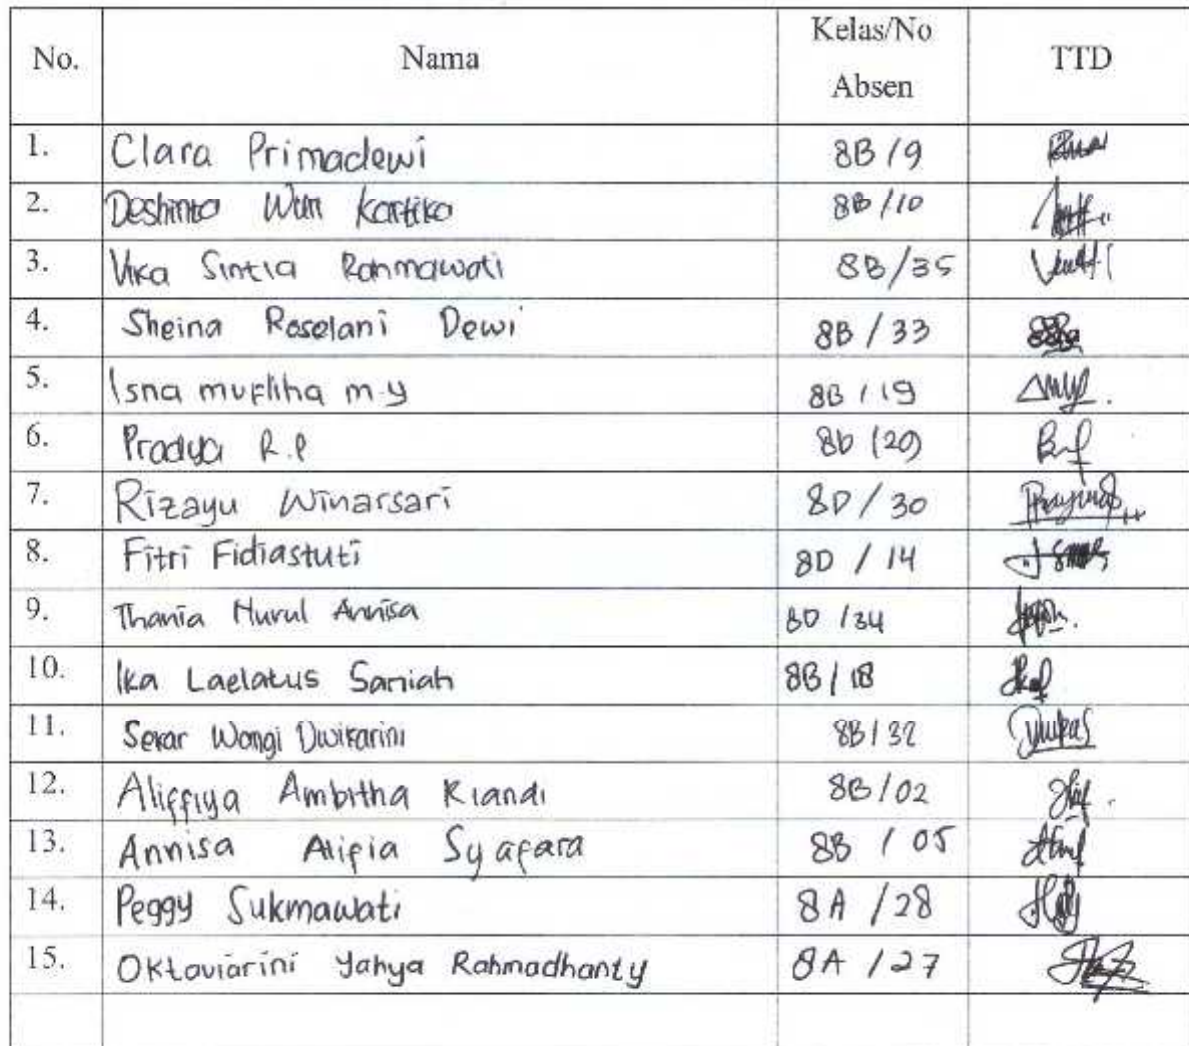 No. Nama Kelas/No Absen TTD
1. Clara Primadewi 8B/9
2. Deshinta Wuri Kartika 8B/10
3. Vika Sintia Rahmawati 8B/35
4. Sheina Roselani Dewi 8B/33
5. Isna mufliha m.y 8B/19
6. Pradya R.P 8D/29
7. Rizayu Winarsari 8D/30
8. Fitri Fidiastuti 8D/14
9. Thania Nurul Annisa 8D/34
10. Ika Laelatus Saniah 8B/18
11. Sekar Wangi Dwikarini 8B/32
12. Aliffiya Ambitha Riandi 8B/02
13. Annisa Alifia Syafara 8B/05
14. Peggy Sukmawati 8A/28
15. Oktaviarini Yahya Rahmadhanty 8A/27